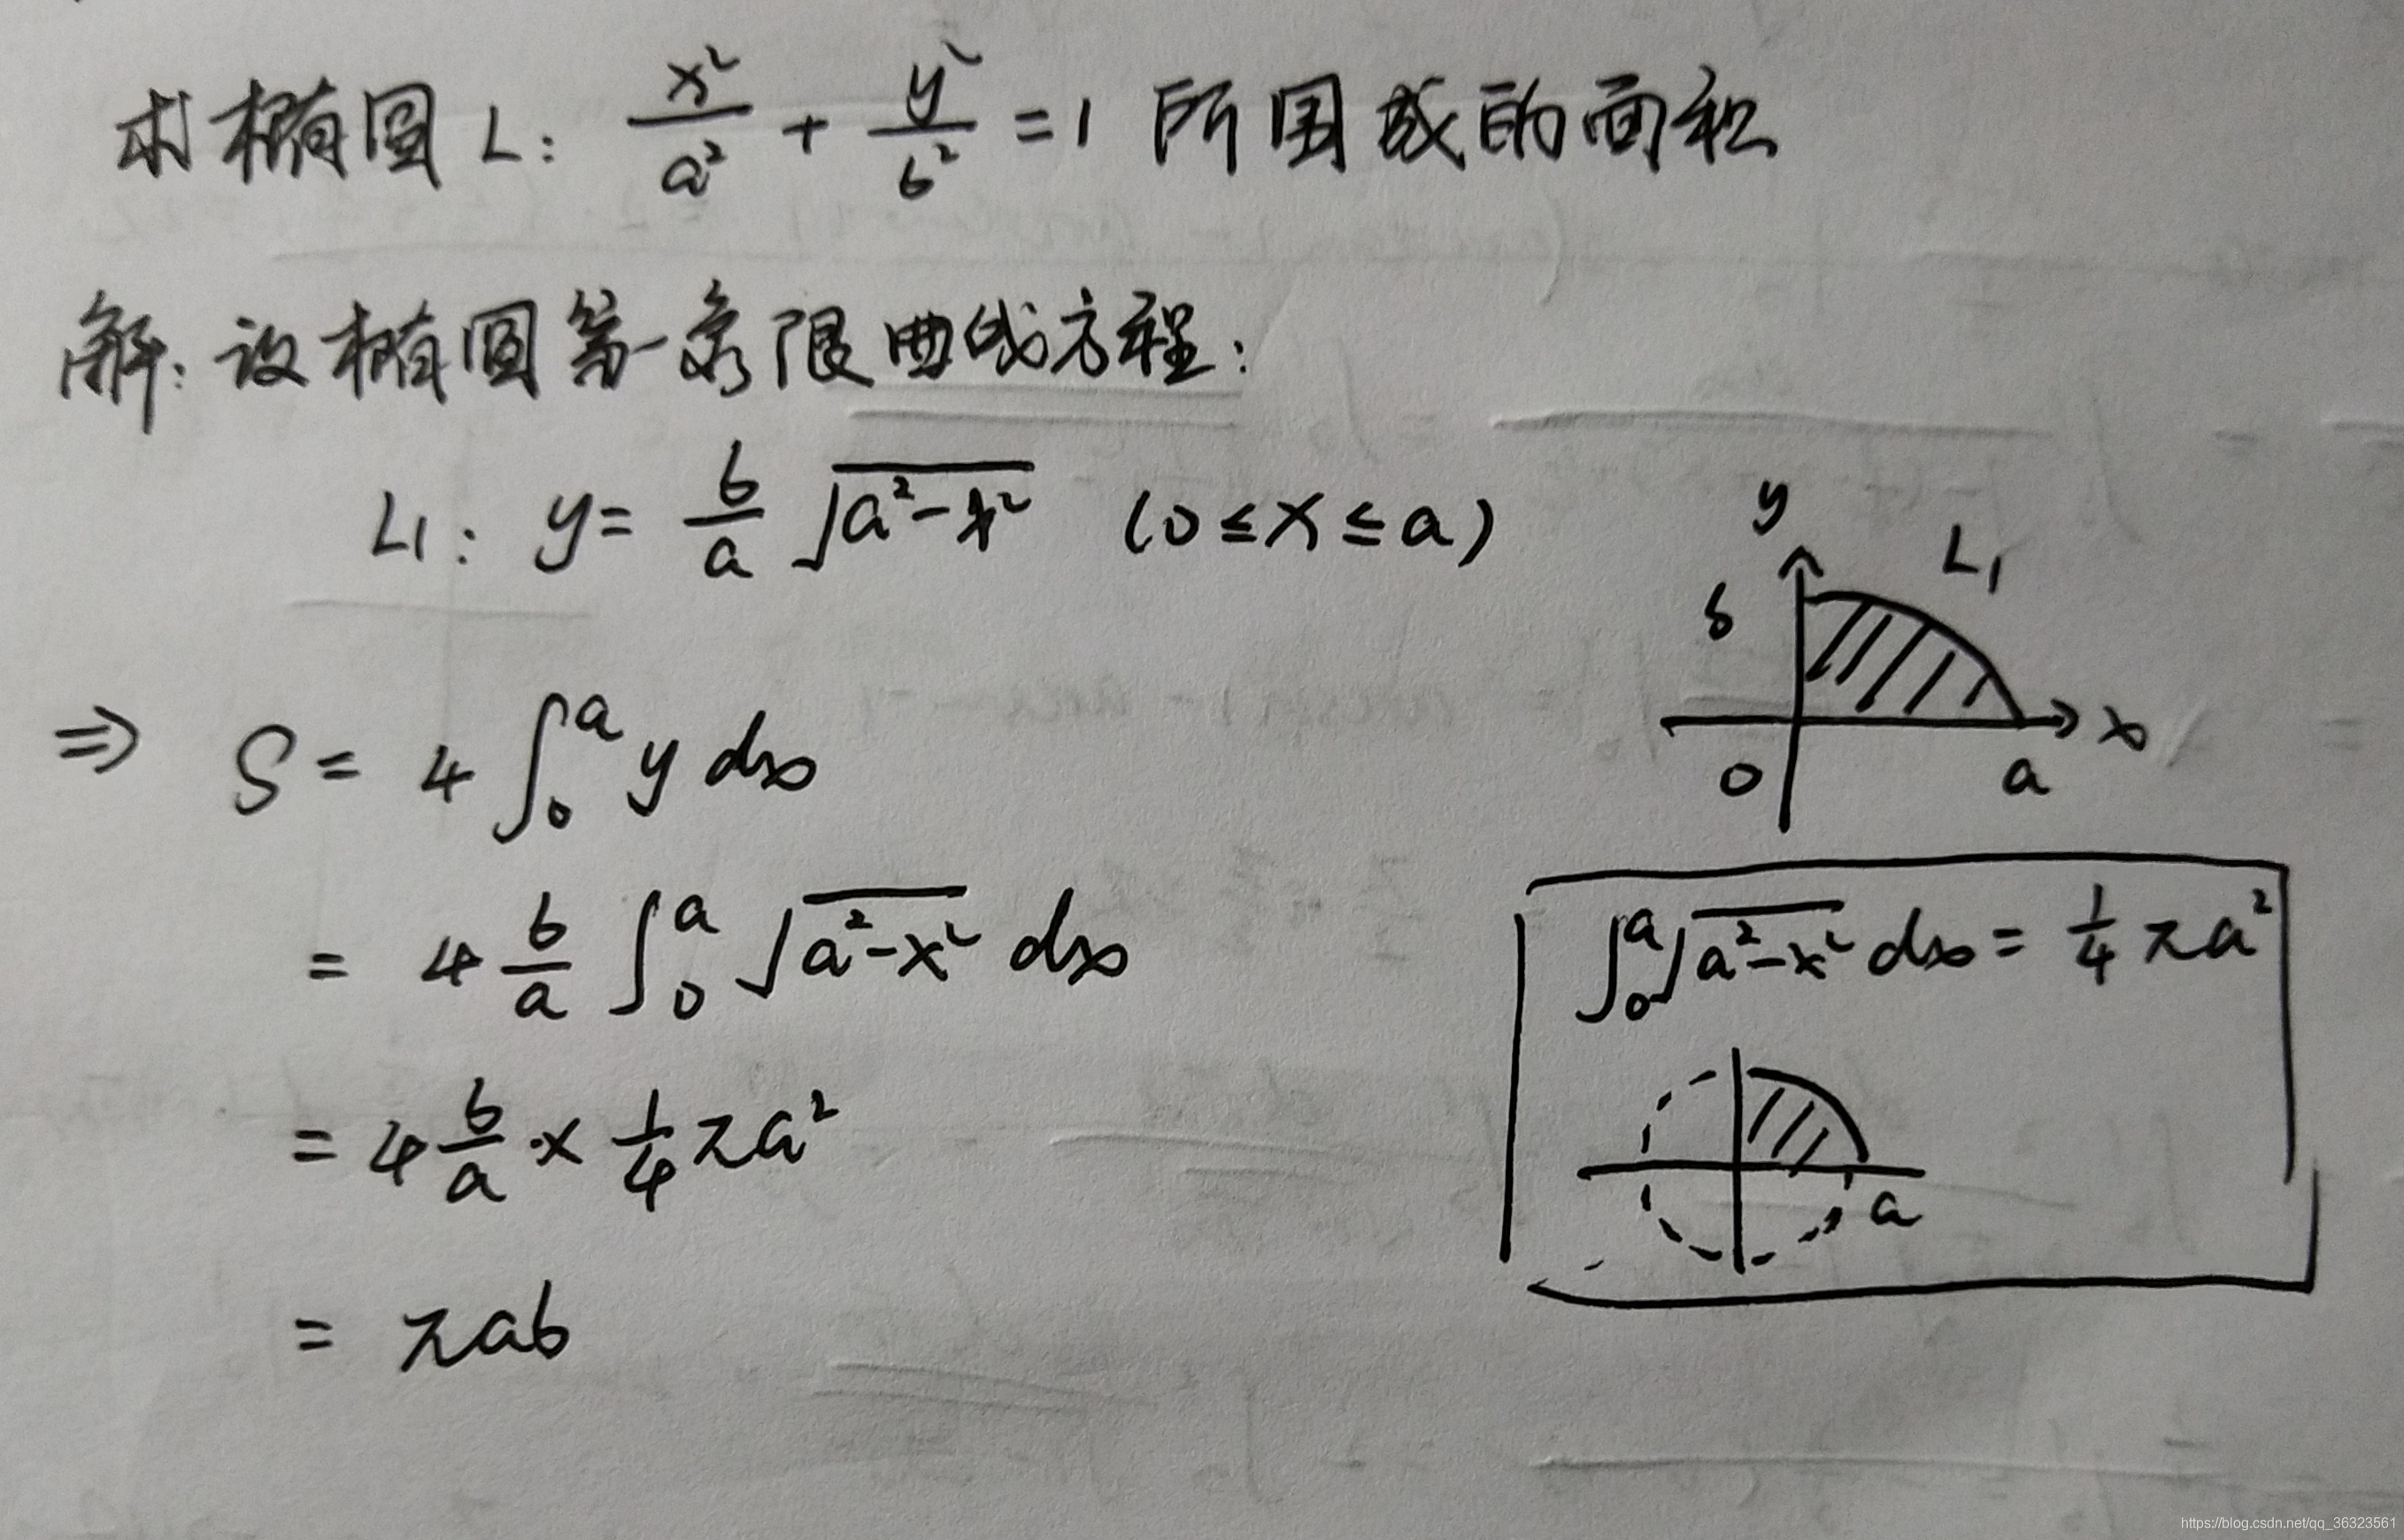 求椭圆 L: x²/a² + y²/b² = 1 所围成的面积
解: 设椭圆第一象限曲线方程:
L1: y = b/a √(a²-x²) (0≤x≤a)
y
L1
b
x
0
a
⇒ S = 4∫₀ᵃ y dx
= 4 b/a ∫₀ᵃ √(a²-x²) dx
= 4 b/a · × 1/4 πa²
= πab
∫₀ᵃ √(a²-x²) dx = 1/4 πa²
a
https://blog.csdn.net/qq_36323561